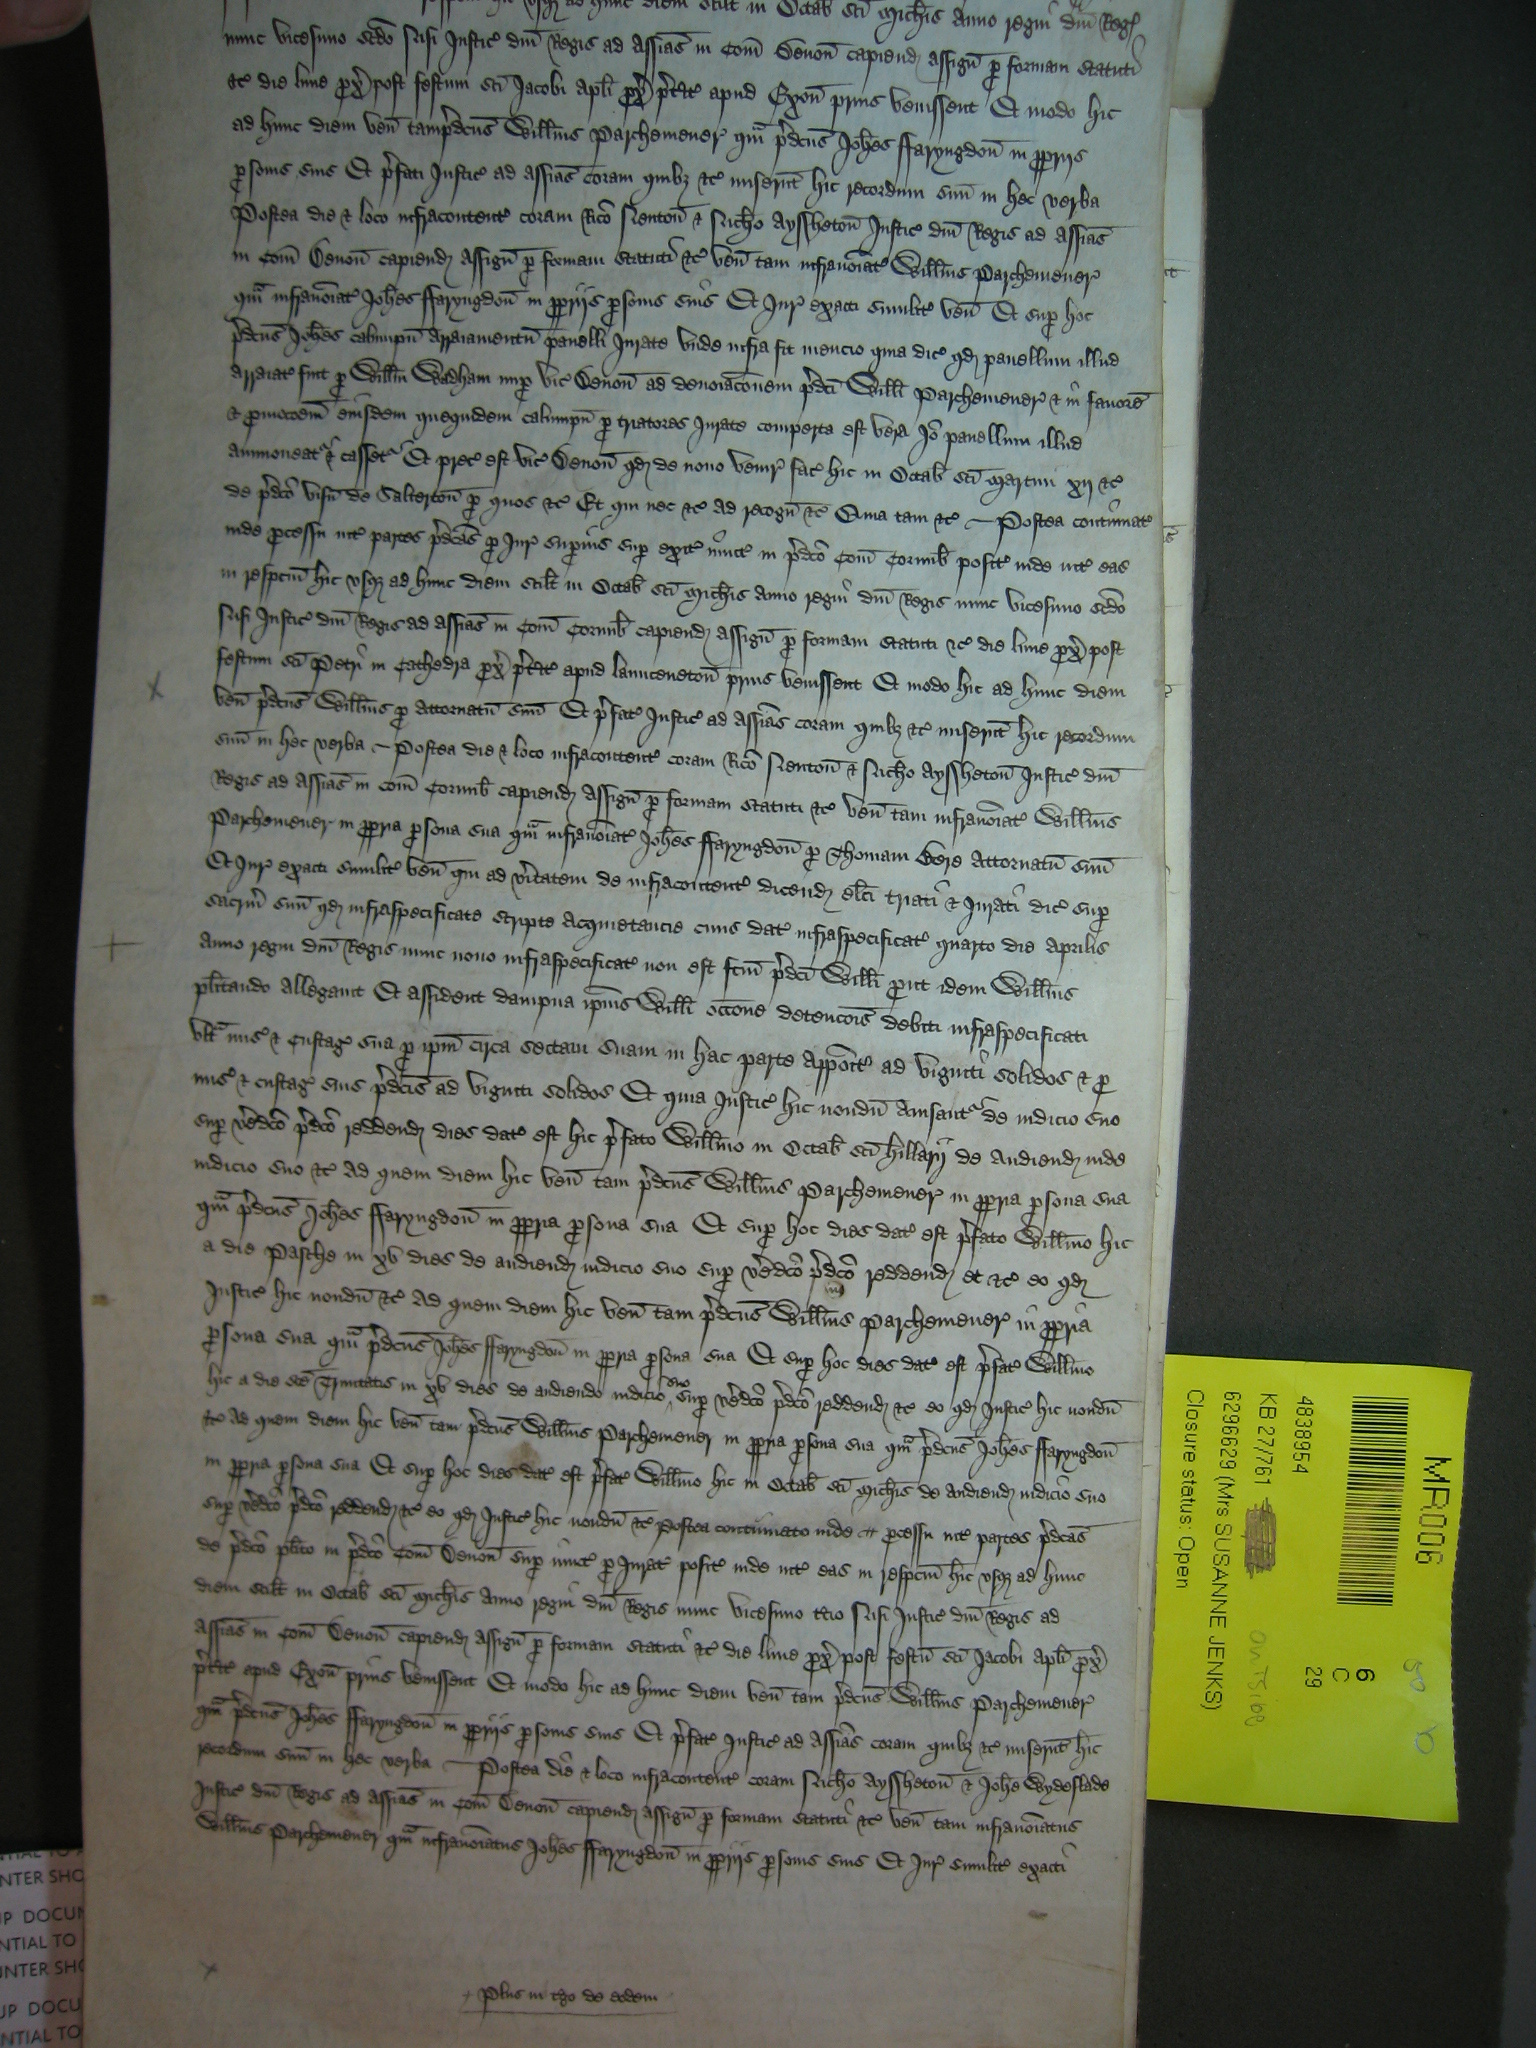 usqȝ ad hunc diem scilt in Octab sci Michis Anno regni dni Reg
nunc vicesimo scdo Nisi Justic dni Regis ad Assias in Com Devon capiend assign p formam statuti
&c die lune px post festum sci Jacobi Apli px pt&c apud Exon prius venissent Et modo hic
ad hunc diem ven tam pdcus Willms Parchemener qm pdcus Johes ffaryngdon in ppriis
psonis suis Et pfati Justic ad Assias coram quibȝ &c miserut hic recordum suu in hec verba
Postea die & loco infracontent coram Rico Neuton & Nicho Ayssheton Justic dni Regis ad Assias
in Com Devon capiend Assign p formam statuti &c ven tam infranoiat Willms Parchemener
qm infranoiat Johes ffaryngdon in ppriis psonis suis Et Jur exacti similit ven Et sup hoc
pdcus Johes calumpn Arraiamentu panelli Jurate unde infra fit mencio quia dic qd panellum illud
arraiat fuit p Willm Wadham nup vic Devon ad denoiacoem pdci Willi Parchemener & in favore
& pmocoem eiusdem quequidem calumpn p triatores Jurate comperta est vera Jo panellum illud
ammoveat & casset Et prec est vic Devon qd de novo venir fac hic in Octab sci Martini xij &c
de pdco visn de Salterton p quos &c Et qui nec &c Ad recogn &c Quia tam &c – Postea continuat
inde pcessu int partes pdcas p Jur supius sup exit iunct in pdco Com Cornub posit inde int eas
in respcm hic usqȝ ad hunc diem scilt in Octab sci Michis Anno regni dni Regis nunc vicesimo scdo
Nisi Justic dni Regis ad Assias in Com Cornub capiend Assign p formam statuti &c die lune px post
festum sci Petri in Cathedra px pt&c apud Launceneton prius venissent Et modo hic ad hunc diem
ven pdcus Willms p Attornatu suu Et pfat Justic ad Assias coram quibȝ &c miserut hic recordum
suu in hec verba – Postea die & loco infracontent coram Rico Neuton & Nicho Ayssheton Justic dni
Regis ad Assias in Com Cornub capiend Assign p formam statuti &c ven tam infranoiat Willms
Parchemener in ppria psona sua qm infranoiat Johes ffaryngdon p Thomam Gere Attornatu suu
Et Jur exacti similit ven qui ad vitatem de infracontent dicend elci triati & Jurati dic sup
sacrm suu qd infraspecificate scripte Acquietancie cuius dat infraspecificat quarto die Aprilis
Anno regni dni Regis nunc nono infraspecificat non est fcm pdci Willi prout idem Willms
plitando Allegavit Et assident dampna ipius Willi occone detencois debiti infraspecificati
ult mis & Custag sua p ipm circa sectam suam in hac parte Appoit ad viginti solidos & p
mis & custag suis pdcis ad viginti solidos Et quia Justic hic nondu Avisant de iudicio suo
sup vedco pdco reddend dies dat est hic pfato Willmo in Octab sci Hillarij de Audiend inde
iudicio suo &c Ad quem diem hic ven tam pdcus Willms Parchemener in ppria psona sua
qm pdcus Johes ffaryngdon in ppria psona sua Et sup hoc dies dat est pfato Willmo hic
a die Pasche in xv dies de audiend iudicio suo sup vedco pdco reddend et &c eo qd
Justic hic nondu &c Ad quem diem hic ven tam pdcus Willms Parchemener in ppria
psona sua qm pdcus Johes ffaryngdon in ppria psona sua Et sup hoc dies dat est pfat Willmo
hic a die sce Trinitatis in xv dies de audiendo iudicio suo sup vedco pdco reddend &c eo qd Justic hic nondu
&c Ad quem diem hic ven tam pdcus Willms Parchemener in ppria psona sua qm pdcus Johes ffaryngdon
in ppria psona sua Et sup hoc dies dat est pfat Willmo hic in Octab sci Michis de Audiend iudicio suo
sup vedco pdco reddend &c eo qd Justic hic nondu &c Postea continuato inde pcessu int partes pdcas
de pdco plito in pdco Com Devon sup iunct p Jurat posit inde int eas in respcm hic usqȝ ad hunc
diem scilt in Octab sci Michis Anno regni dni Regis nunc vicesimo tcio Nisi Justic dni Regis ad
Assias in Com Devon capiend Assign p formam statuti &c die lune px post festu sci Jacobi Apli px
pt&c apud Exon prius venissent Et modo hic ad hunc diem ven tam pdcus Willms Parchemener
qm pdcus Johes ffaryngdon in ppriis psonis suis Et pfat Justic ad Assias coram quibȝ &c miserut hic
recordum suu in hec verba – Postea die & loco infracontent coram Nicho Ayssheton & Johe Wydeslade
Justic dni Regis ad Assias in Com Devon capiend Assign p formam statuti &c ven tam infranoiatus
Willms Parchemener qm infranoiatus Johes ffaryngdon in ppriis psonis suis Et Jur similit exacti
Plus in tgo de eodem
MR006
6
C
29
4838954
KB 27/761
6296629 (Mrs SUSANNE JENKS)
Closure status: Open
On Tside
NTER SHO
UP DOCUM
NTIAL TO
UNTER SHO
UP DOCU
NTIAL TO